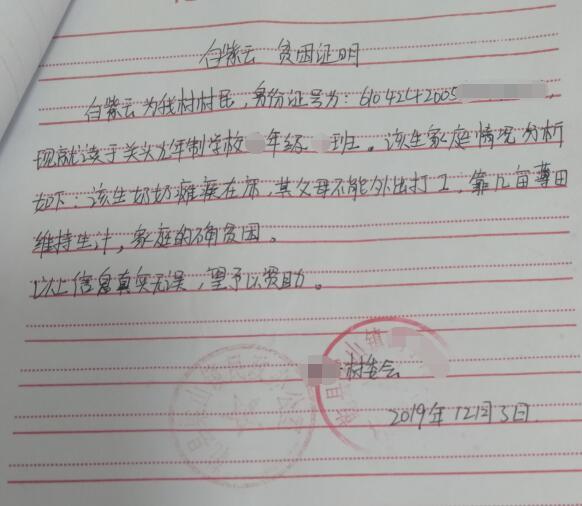 白紫云 贫困证明
白紫云为我村村民，身份证号为：6104242005
现就读于关头九年制学校 年级 班。该生家庭情况分析
如下：该生奶奶瘫痪在床，其父母不能外出打工，靠几亩薄田
维持生计，家庭的确贫困。
以上信息真实无误，望予以资助。
村委会
2019年12月3日